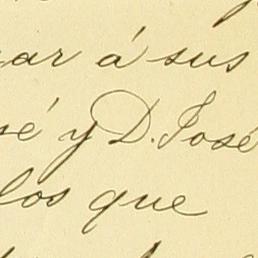 ar á sus
sé y D. José
los que